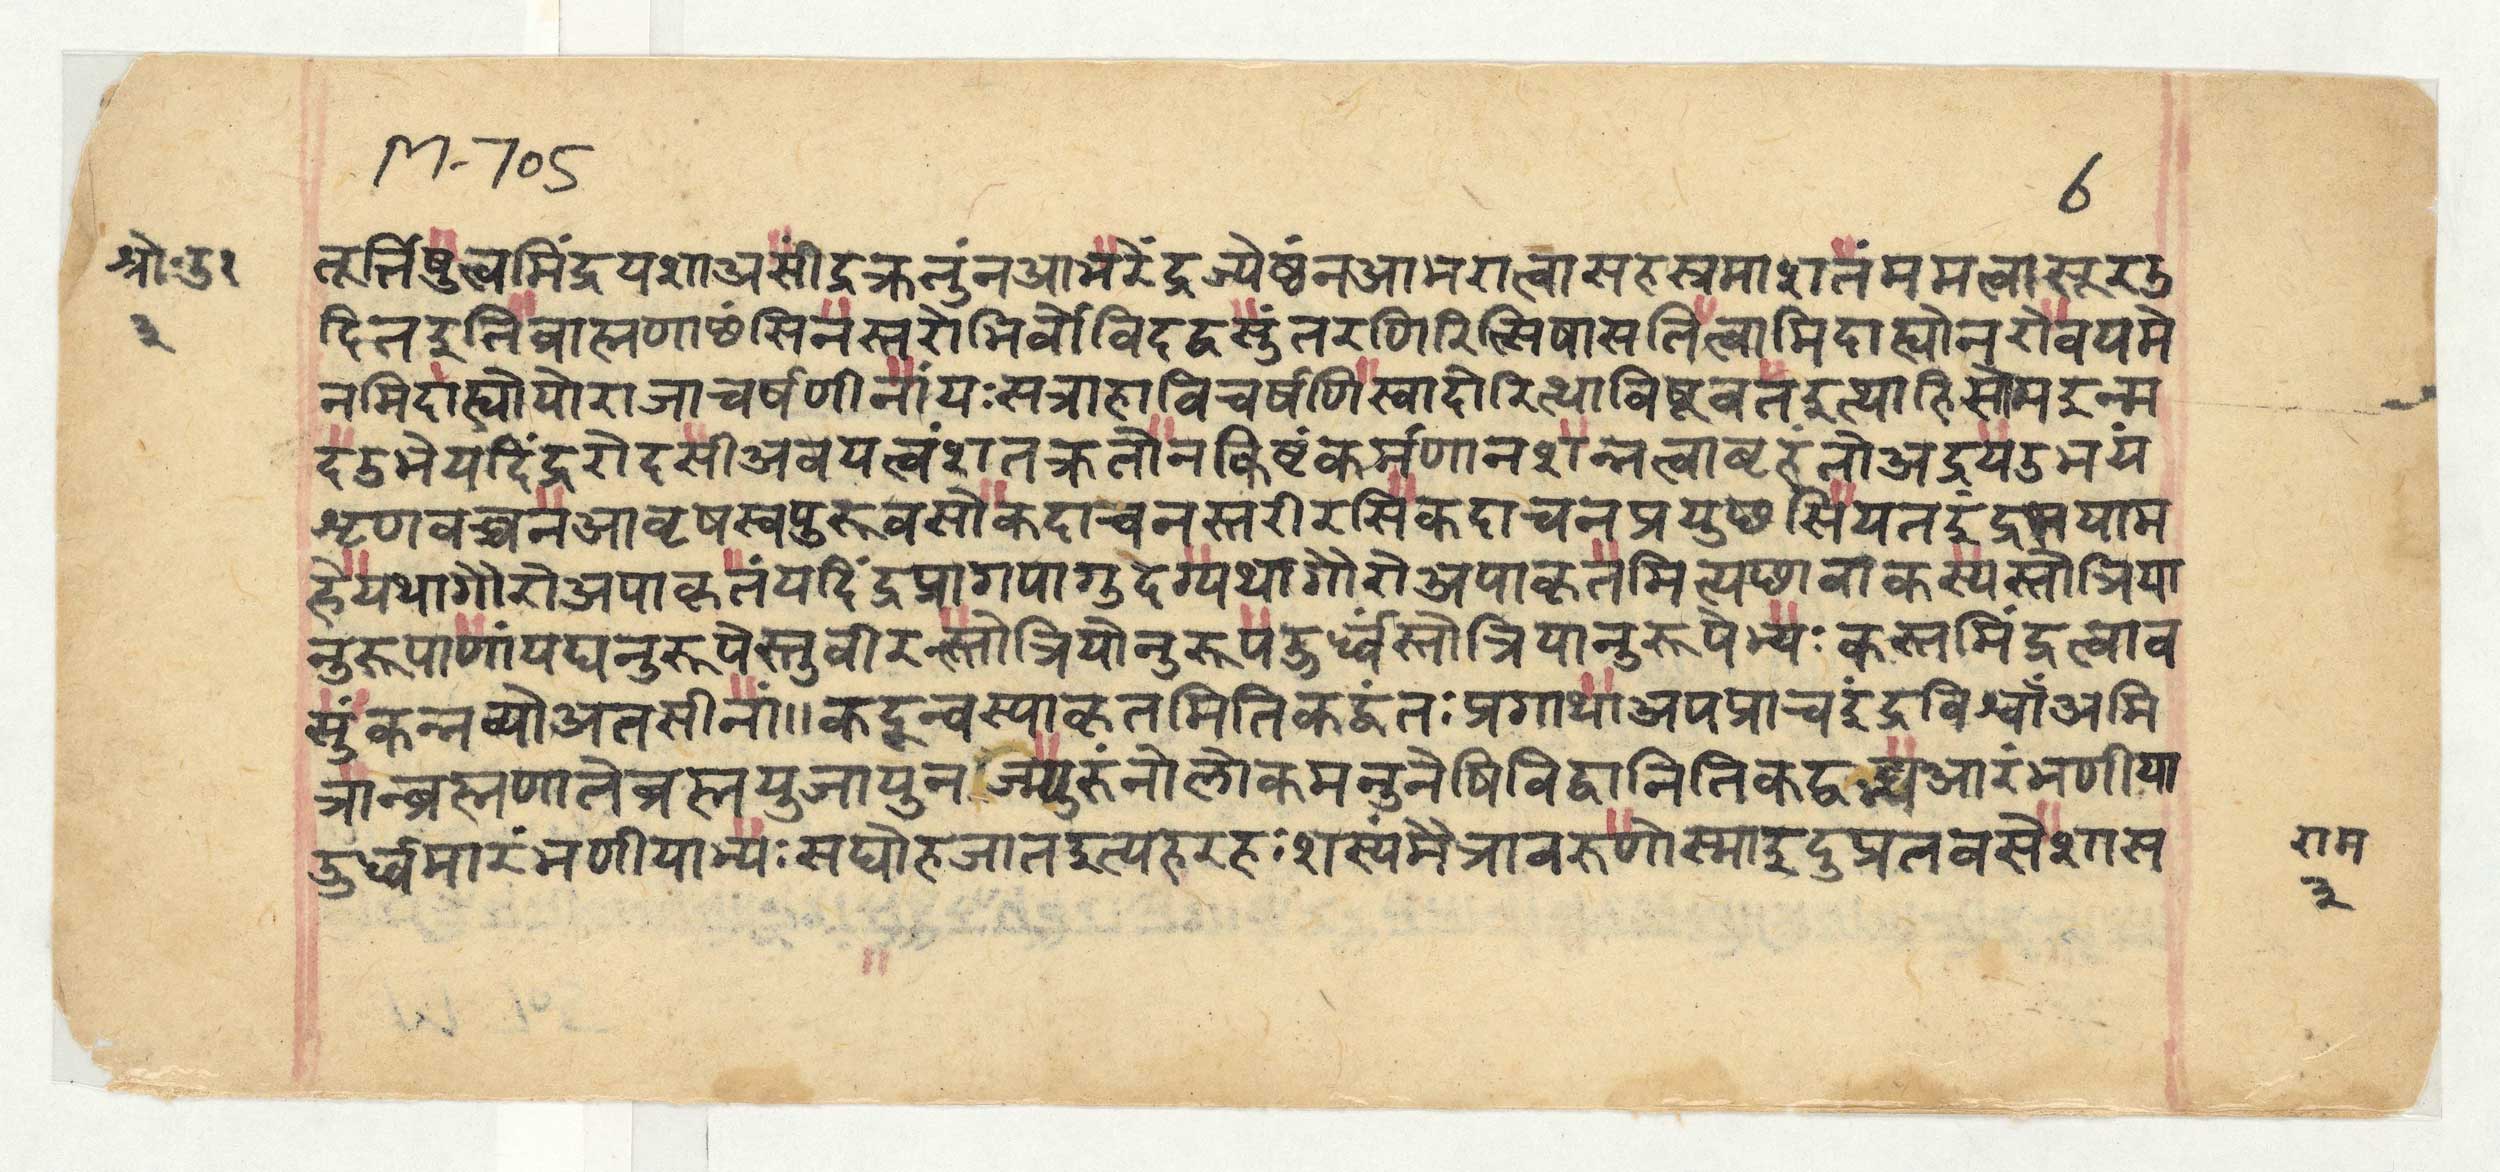 M-705
6
श्रौ॰उ१
३
तूर्तिषुत्वमिंद्रयशाअसींद्रक्रतुंनआभरेंद्रज्येष्ठंनआभरात्वासहस्रमाशतंममत्वासूरउ
दितइतिब्राह्मणाछंसिनस्तरोभिर्वोविदद्वसुंतरणिरित्सिषासतित्वामिदाह्योनरोवयमे
नमिदाह्योयोराजाचर्षणीनांयःसत्राहाविचर्षणिस्वादोरित्थाविषूवतइत्थाहिसोमइन्म
दउभेयदिंद्ररोदसीअवयत्वंशतक्रतोनकिष्टंकर्मणानशन्नत्वाबृहंतोअद्रयउभयं
शृणवच्चनआवृषस्वपुरूवसोकदाचनस्तरीरसिकदाचनप्रयुछसियतइंद्रभयाम
हेयथागौरोअपाकृतंयदिंद्रप्रागपागुदग्यथागौरोअपाकृतमित्यछावाकस्यस्तोत्रिया
नुरूपाणांयद्यनुरूपेस्तुवीरन्स्तोत्रियोनुरूपऊर्ध्वंस्तोत्रियानुरूपेभ्यःकस्तमिंद्रत्वाव
सुंकन्नव्योअतसीनां॥कदून्वस्याकृतमितिकद्वंतःप्रगाथाअपप्राचइंद्रविश्वाँअमि
त्रान्ब्रह्मणातेब्रह्मयुजायुनज्म्युरुंनोलोकमनुनेषिविद्वानितिकद्वद्भ्यआरंभणीया
ऊर्ध्वमारंभणीयाभ्यःसद्योहजातइत्यहरहःशस्यंमैत्रावरुणोस्माइदुप्रतवसेशास
राम
३